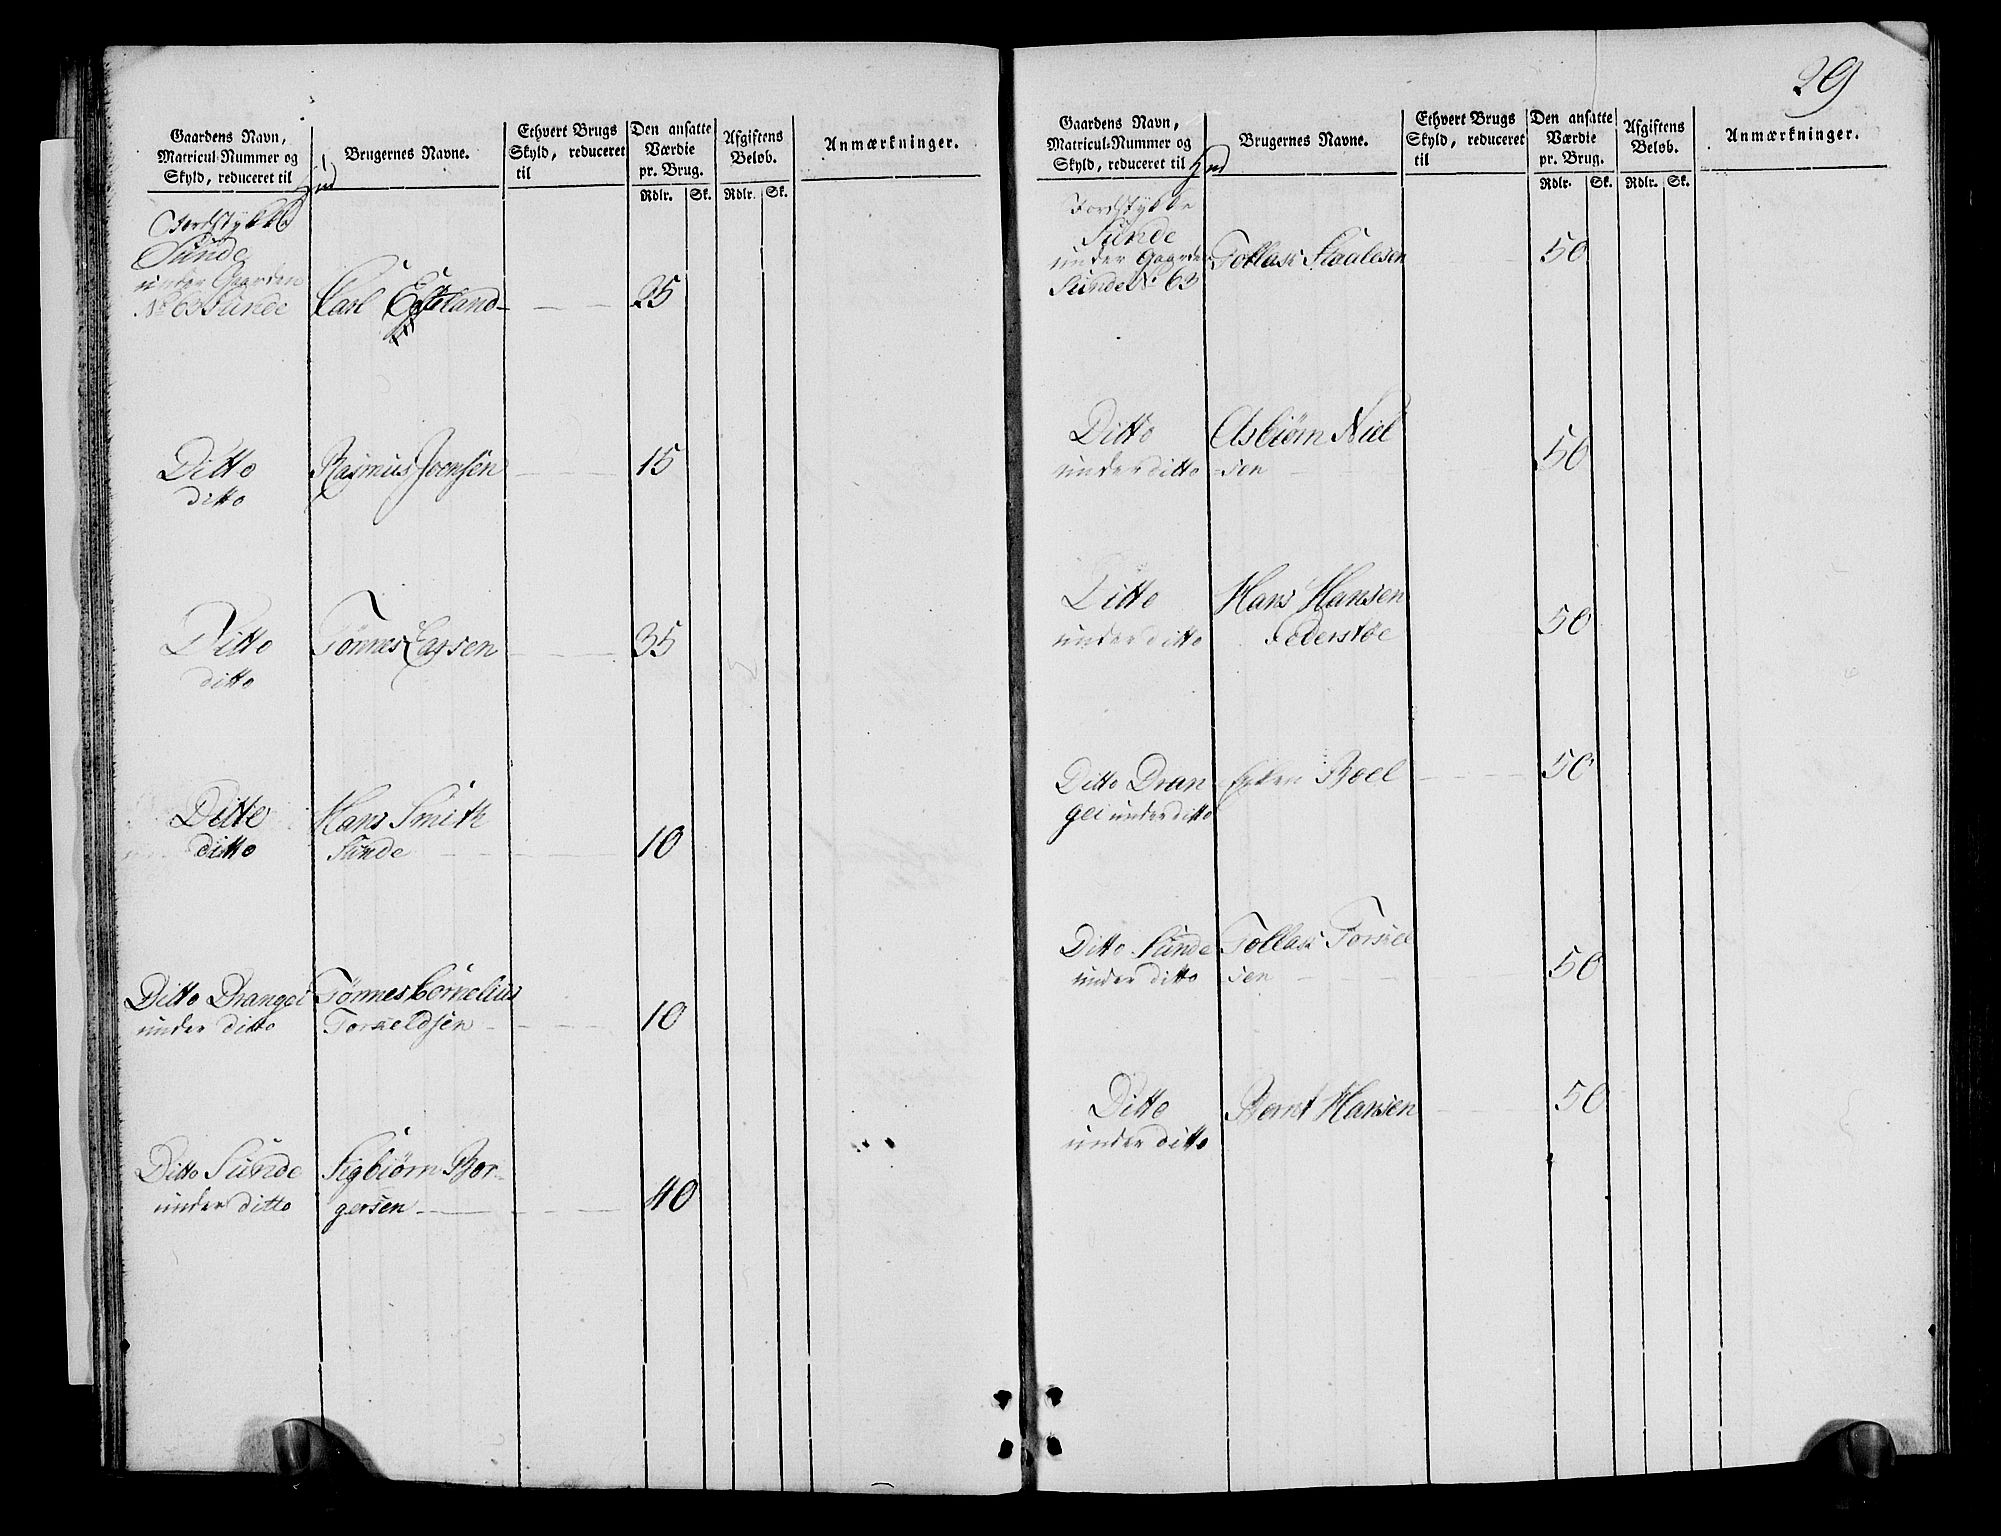 Gaardens Navn,
Matricul-Nummer og
Skyld, reduceret til
Hud
Brugernes Navne.
Ethvert Brugs
Skyld, reduceret
til
Den ansatte
Værdie
pr. Brug.
Rdlr. Sk.
Afgiftens
Beløb.
Rdlr. Sk.
Anmærkninger.
Jordstykke
Sunde
under Gaarden
No 63 Sunde Carl 25
Ditto Rasmus Joensen 15
ditto
Ditto Tønnes 35
ditto
Ditto Hans Smith
ditto Sunde 10
Ditto Drangei Tønnes Cornelius
under ditto Torkeldsen 10
Ditto Sunde Sigbiørn Bør-
under ditto gersen 40
29
Gaardens Navn,
Matricul-Nummer og
Skyld, reduceret til
Hud
Brugernes Navne.
Ethvert Brugs
Skyld, reduceret
til
Den ansatte
Værdie
pr. Brug.
Rdlr. Sk.
Afgiftens
Beløb.
Rdlr. Sk.
Anmærkninger.
Jordstykke
Sunde
under Gaarden Tollak Staalesen 50
Sunde No 63
Ditto Asbiørn Niel
under ditto sen 50
Ditto Hans Hansen
under ditto 50
Ditto Dran Boel 50
gei under ditto
Ditto Sunde Tollak Torkel
under ditto sen 50
Ditto Bernt Hansen 50
under ditto